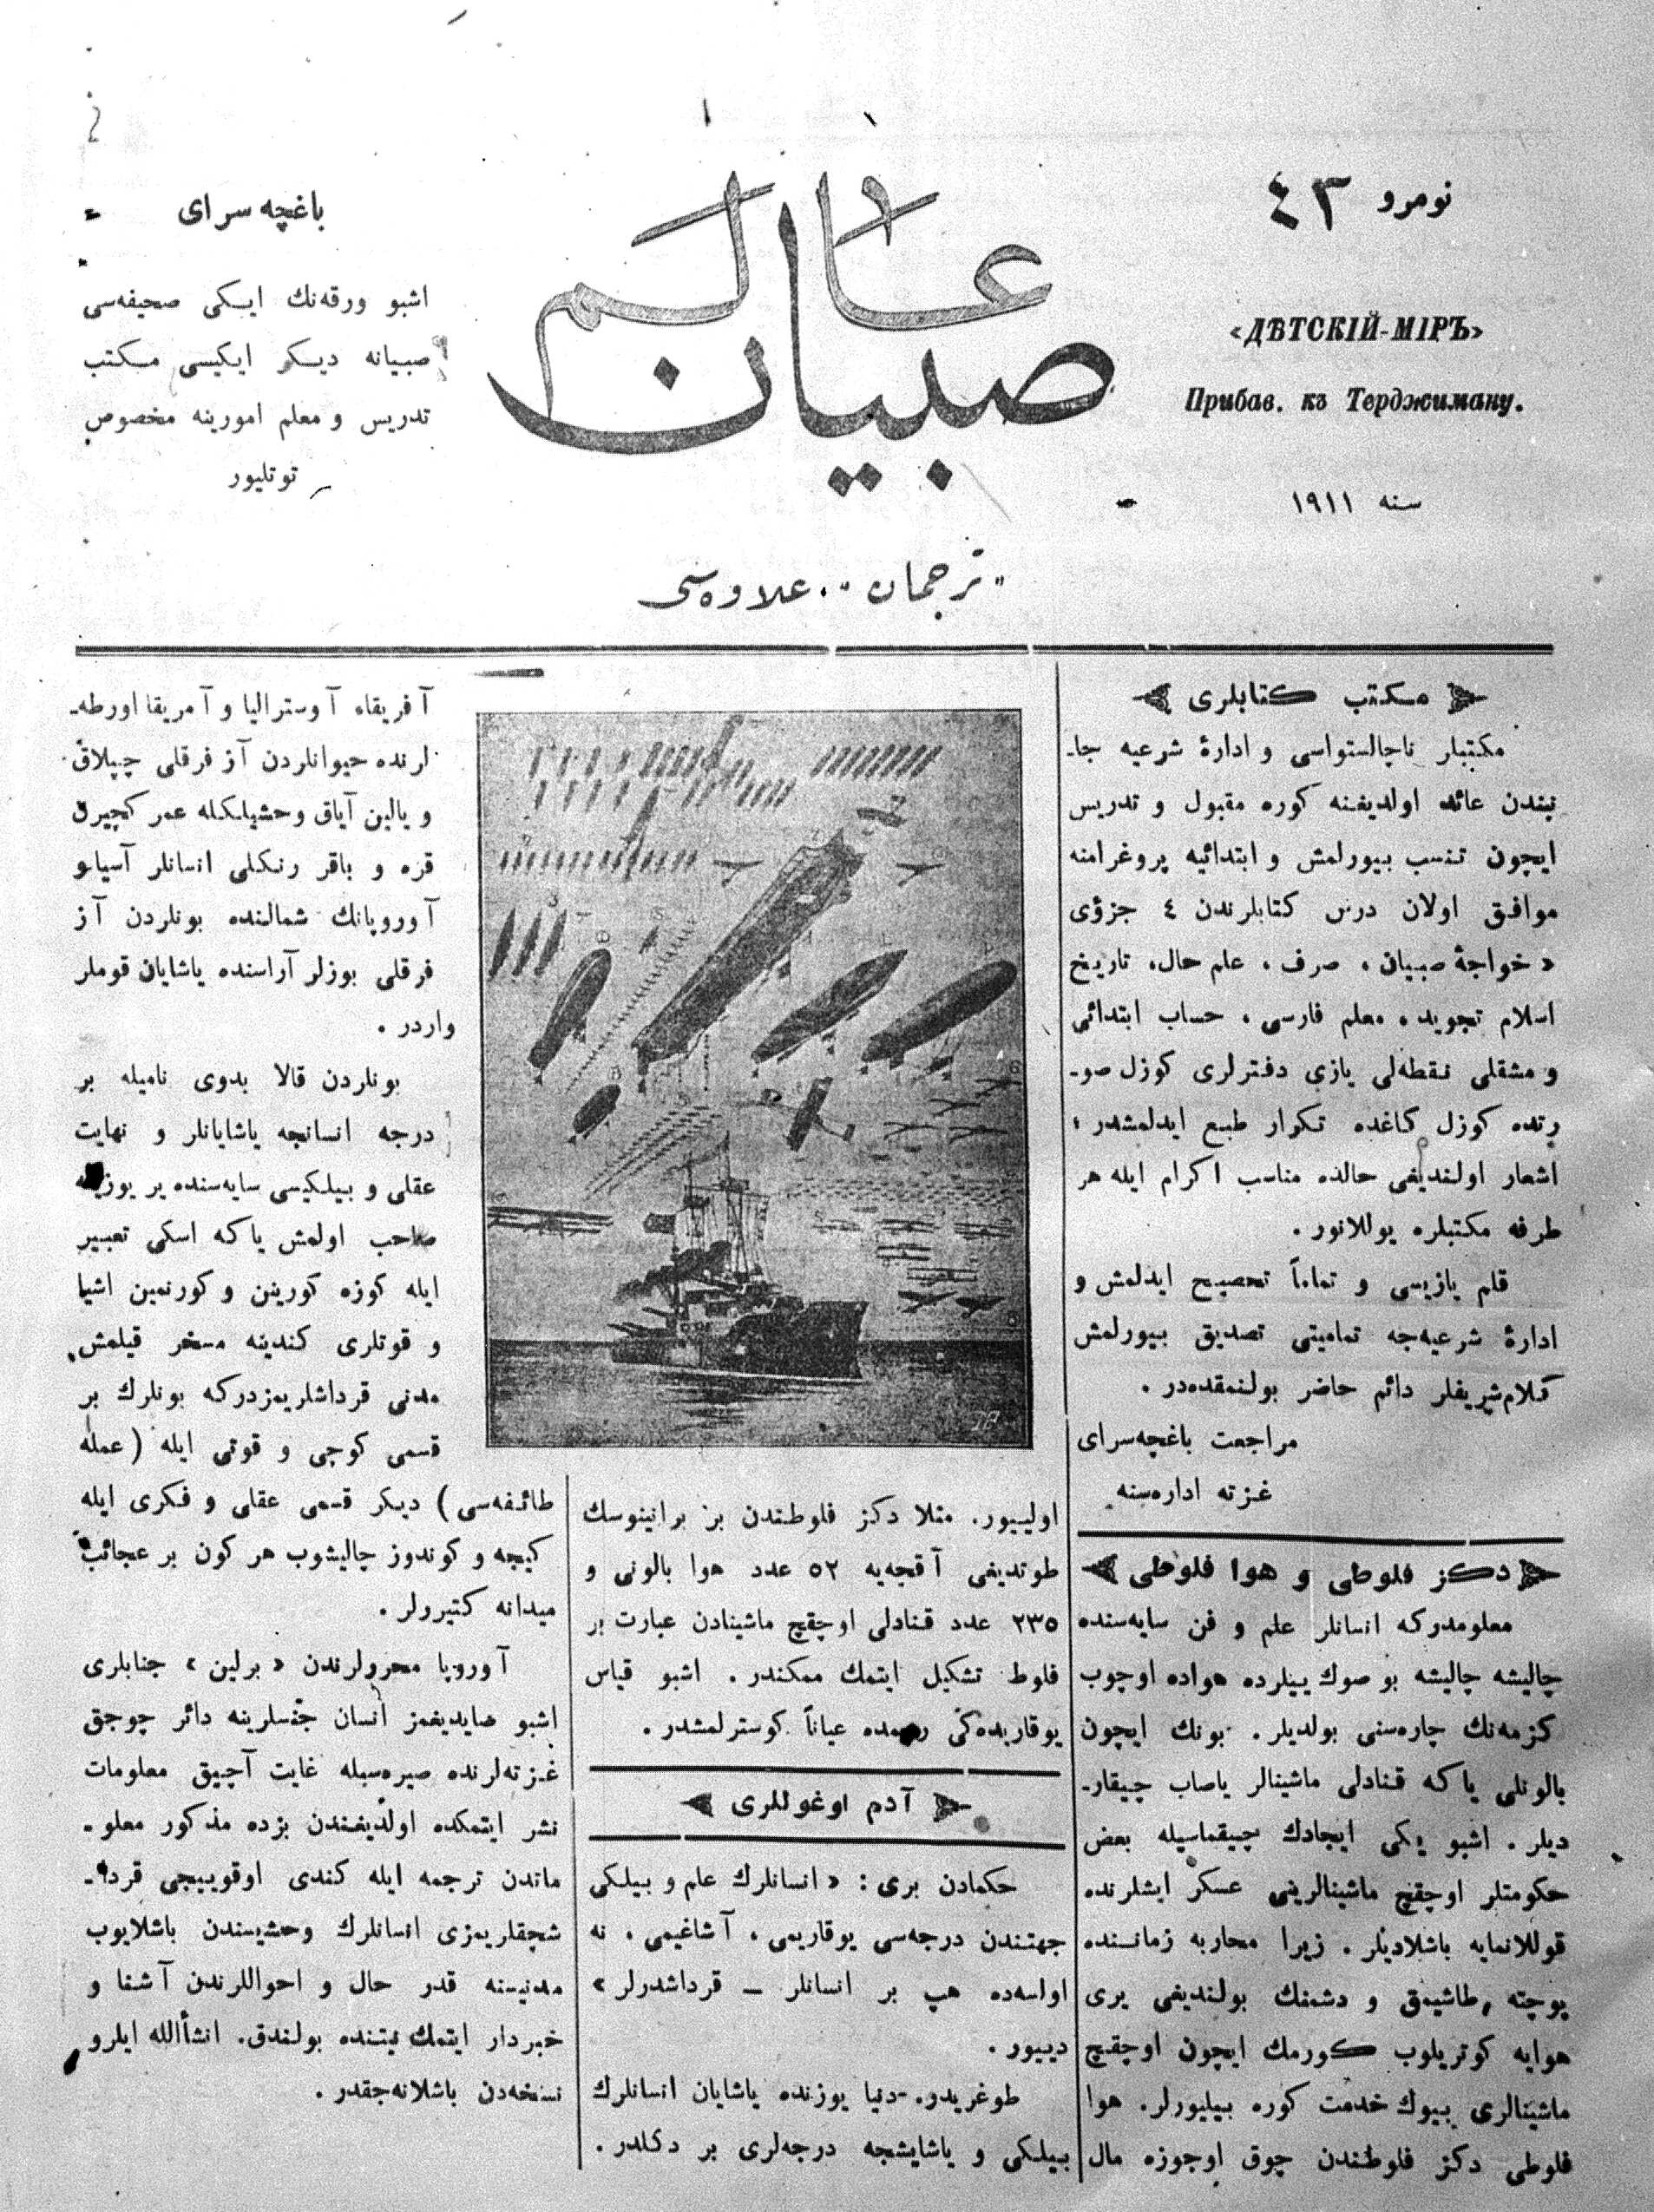 نومرو ٤٣
«ДѢТСКІЙ-МІРЪ»
Прибав. къ Терджиману.
سنه ١٩١١
عالم
صبيان
"ترجمان" علاوه‌سی
باغچه سرای
اشبو ورقه‌نك ایكی صحیفه‌سی
صبیانه دیكر ایكیسی مكتب
تدریس و معلم امورینه مخصوص
توتلیور
مكتب كتابلری
مكتبلر ناچالستواسی و ادارهٔ شرعیه جا-
نبندن عائد اولدیغنه كوره مقبول و تدریس
ایچون تنسب بیورلمش و ابتدائیه پروغرامنه
موافق اولان درس كتابلرندن ٤ جزؤی
«خواجهٔ صبیان، صرف، علم حال، تاریخ
اسلام تجوید، معلم فارسی، حساب ابتدائی
و مشقلی نقطه‌لی یازی دفترلری كوزل صو-
رتده كوزل كاغده تكرار طبع ایدلمشدر؛
اشعار اولندیغی حالده مناسب اكرام ایله هر
طرفه مكتبلره یوللانور.
قلم یازیسی و تماماً تصحیح ایدلمش و
ادارهٔ شرعیه‌جه تمامیتی تصدیق بیورلمش
كلام‌شریفلر دائم حاضر بولنمقده‌در.
مراجعت باغچه‌سرای
غزته اداره‌سنه
دكز فلوطی و هوا فلوطی
معلومدركه انسانلر علم و فن سایه‌سنده
چالیشه چالیشه بو صوك ییلرده هواده اوچوب
كزمه‌نك چاره‌سنی بولدیلر. بونك ایچون
بالونلی یاكه قنادلی ماشینالر یاصاب چیقار-
دیلر. اشبو یكی ایجادك چیقماسیله بعض
حكومتلر اوچقیچ ماشینالرینی عسكر ایشلرنده
قوللانمایه باشلادیلر. زیرا محاربه زماننده
پوچته طاشیمق و دشمنك بولندیغی یری
هوایه كوتریلوب كورمك ایچون اوچقیچ
ماشینالری بیوك خدمت كوره بیلیورلر. هوا
فلوطی دكز فلوطندن چوق اوجوزه مال
اولییور. مثلا دكز فلوطندن بز برانینوسك
طوتدیغی آقچه‌یه ٥٢ عدد هوا بالونی و
٢٣٥ عدد قنادلی اوچقیچ ماشینادن عبارت بر
فلوط تشكیل ایتمك ممكندر. اشبو قیاس
یوقاریده‌كی رسمده عیاناً كوسترلمشدر.
آدم اوغوللری
حكمادن بری: «انسانلرك علم و بیلكی
جهتندن درجه‌سی یوقاریمی، آشاغیمی، نه
اولسه‌ده هپ بر انسانلر — قرداشدرلر»
دییور.
طوغریدو. دنیا یوزنده یاشایان انسانلرك
بیلكی و یاشایشجه درجه‌لری بر دكلدر.
آفریقاء آوسترالیا و آمریقا اورطه-
لرنده حیوانلردن آز فرقلی چپلاق
و یالین آیاق وحشیلكله عمر كچیرن
قره و باقر رنكلی انسانلر آسیا و
آوروپانك شمالنده بونلردن آز
فرقلی بوزلر آراسنده یاشایان قوملر
واردر.
بونلردن قالا بدوی نامیله بر
درجه انسانچه یاشایانلر و نهایت
عقلی و بیلكیسی سایه‌سنده یر یوزینه
صاحب اولمش یاكه اسكی تعبیر
ایله كوزه كورینن و كورنمین اشیا
و قوتلری كندینه مسخر قیلمش
مدنی قرداشلریمزدركه بونلرك بر
قسمی كوجی و قوتی ایله (عمله
طائفه‌سی) دیكر قسمی عقلی و فكری ایله
كیچه و كوندوز چالیشوب هر كون بر عجائب
میدانه كتیرولر.
آوروپا محررلرندن «برلین» جنابلری
اشبو صایدیغمز انسان جنسلرینه دائر چوجق
غزته‌لرنده صیره‌سیله غایت آچیق معلومات
نشر ایتمكده اولدیغندن بزده مذكور معلو-
ماتدن ترجمه ایله كندی اوقوییجی قردا-
شچقلریمزی انسانلرك وحشیسندن باشلایوب
مدنیسنه قدر حال و احواللرندن آشنا و
خبردار ایتمك نیتنده بولندق. انشأالله ایلرو
نسخه‌دن باشلانه‌جقدر.